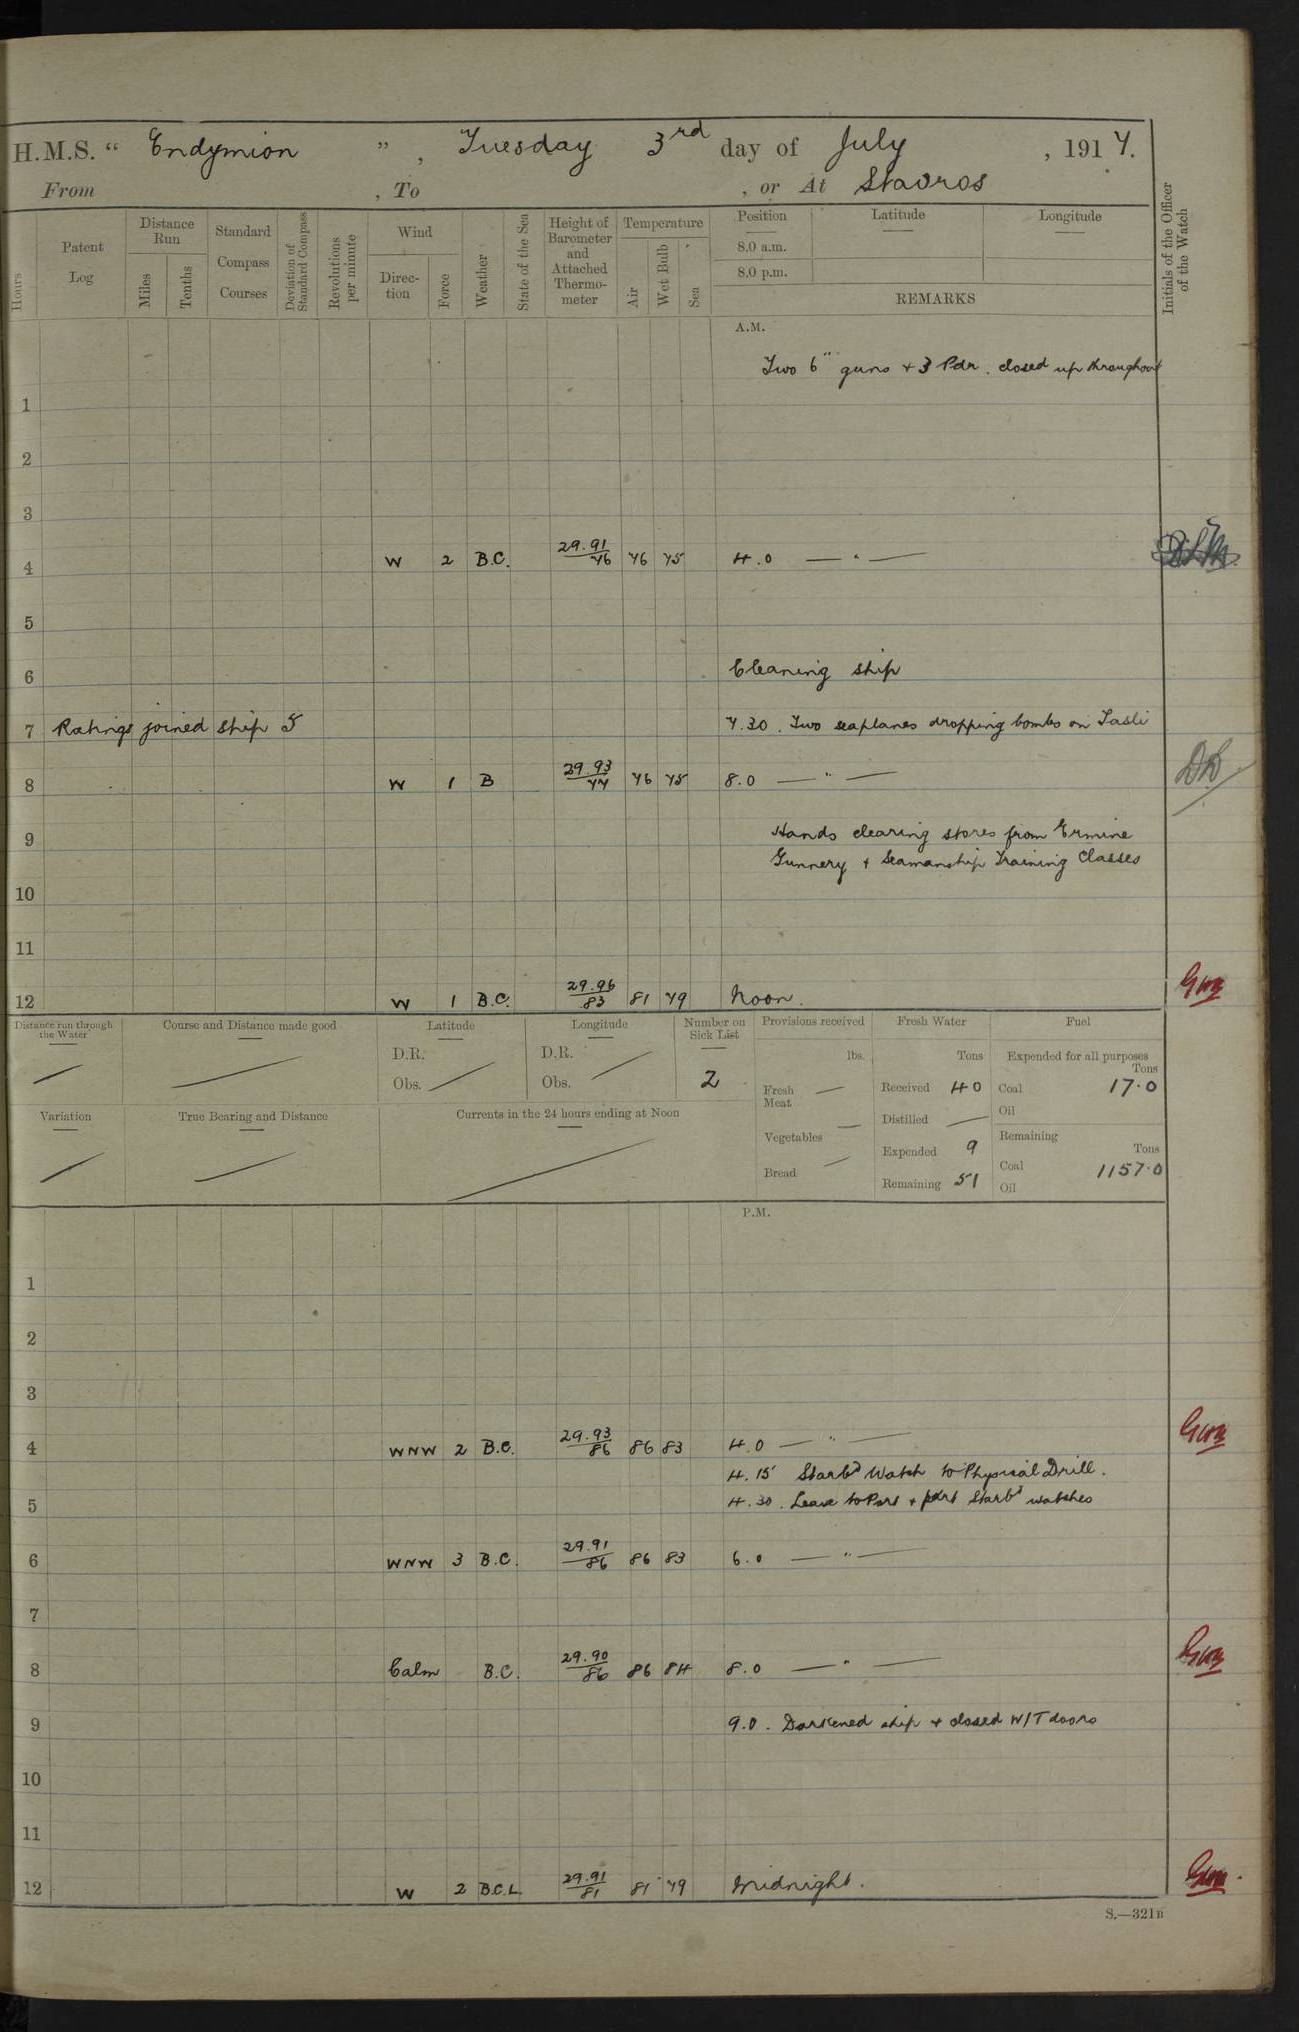 H.M.S. “ Endymion ” , Tuesday 3rd day of July , 1917.
From , To , or At Stavros
Hours
Patent Log
Distance Run
Miles
Tenths
Standard Compass Courses
Deviation of Standard Compass
Revolutions per minute
Wind
Direction
Force
Weather
State of the Sea
Height of Barometer and Attached Thermometer
Temperature
Air
Wet Bulb
Sea
Position
8.0 a.m.
8.0 p.m.
Latitude
Longitude
REMARKS
Initials of the Officer of the Watch
A.M.
Two 6" guns + 3 Pdr. closed up throughout
1
2
3
4 W 2 B.C. 29.91 76 76 75 4.0 — " —
5
6 Cleaning ship
7 Ratings joined ship 5 7.30. Two seaplanes dropping bombs on Tasli
8 W 1 B 29.93 77 76 75 8.0 — " —
9 Hands clearing stores from Ermine
Gunnery + Seamanship Training Classes
10
11
12 W 1 B.C. 29.96 83 81 79 Noon.
Distance run through the Water
Course and Distance made good
Latitude
D.R.
Obs.
Longitude
D.R.
Obs.
Number on Sick List
2
Provisions received
lbs.
Fresh Meat —
Vegetables —
Bread —
Fresh Water
Tons
Received 40
Distilled —
Expended 9
Remaining 51
Fuel
Expended for all purposes
Tons
Coal 17.0
Oil
Remaining
Tons
Coal 1157.0
Oil
Variation
True Bearing and Distance
Currents in the 24 hours ending at Noon
P.M.
1
2
3
4 WNW 2 B.C. 29.93 86 86 83 4.0 — " —
4.15 Starbd Watch to Physical Drill.
5 4.30. Leave to Port + part Starbd watches
6 WNW 3 B.C. 29.91 86 86 83 6.0 — " —
7
8 Calm B.C. 29.90 86 86 84 8.0 — " —
9 9.0. Darkened ship + closed W/T doors
10
11
12 W 2 B.C.L. 29.91 81 81 79 Midnight.
S.—321B